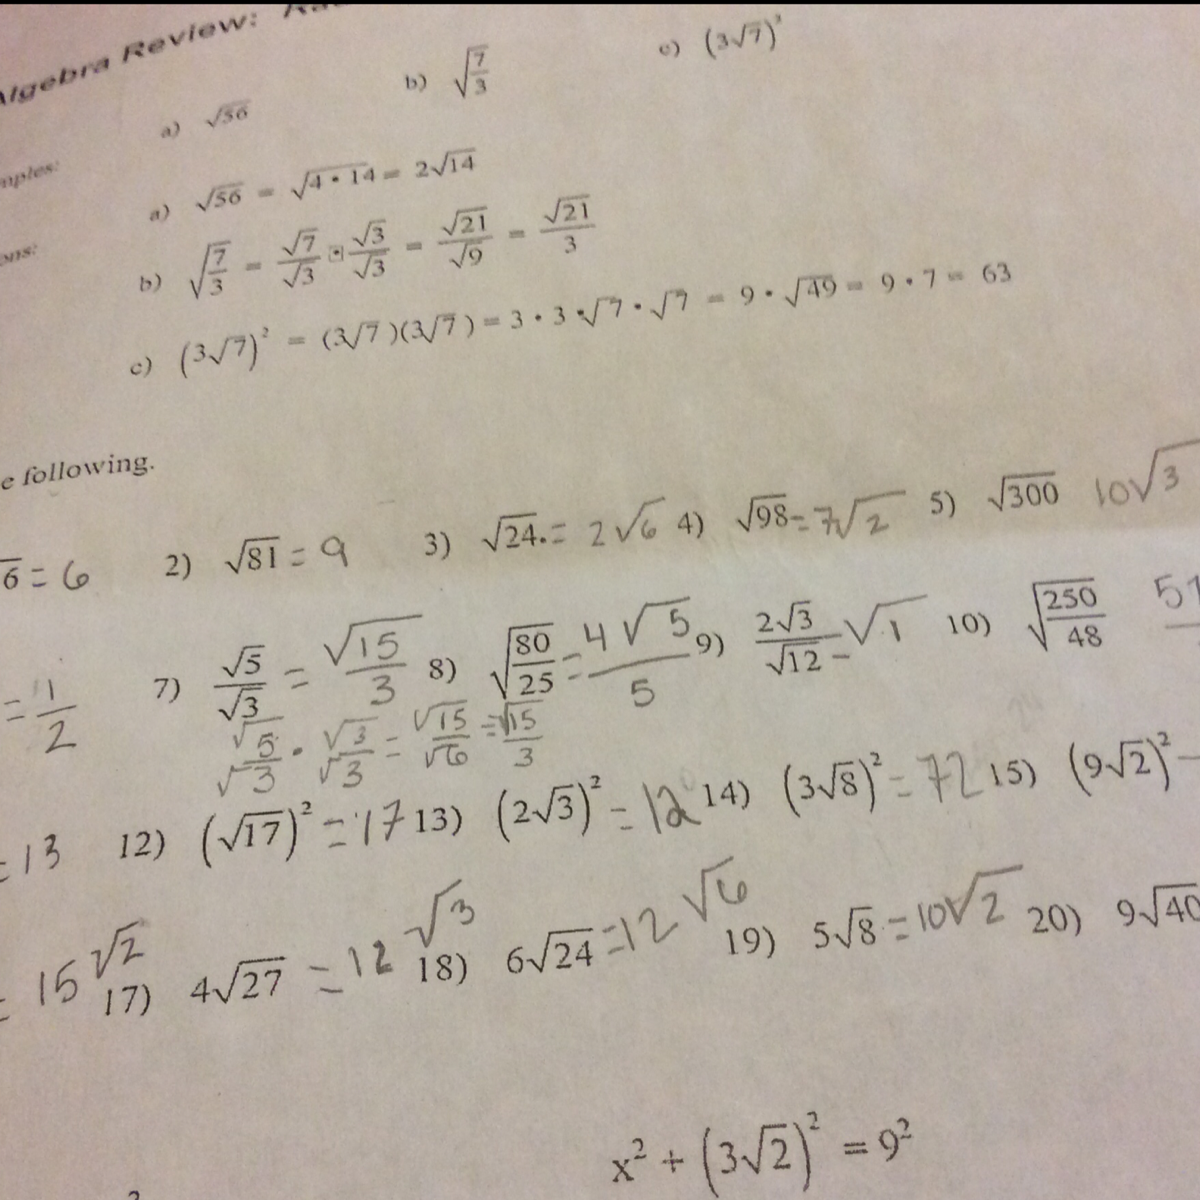 Algebra Review:
a) √56 b) √(7/3) c) (3√7)²
a) √56 = √4 • 14 = 2√14
b) √(7/3) = √7/√3 • √3/√3 = √21/√9 = √21/3
c) (3√7)² = (3√7)(3√7) = 3 • 3 • √7 • √7 = 9 • √49 = 9 • 7 = 63
e following.
6 = 6 2) √81 = 9 3) √24. = 2√6 4) √98 = 7√2 5) √300 10√3
= 1/2 7) √5/√3 = √15/3 8) √(80/25) = 4√5/5 9) 2√3/√12 = √1 10) √(250/48) 51
√5/√3 • √3/√3 = √15/√6 = √15/3
= 13 12) (√17)² = 17 13) (2√3)² = 12 14) (3√8)² = 72 15) (9√2)² =
= 15√2 17) 4√27 = 12√3 18) 6√24 = 12√6 19) 5√8 = 10√2 20) 9√40
x² + (3√2)² = 9²